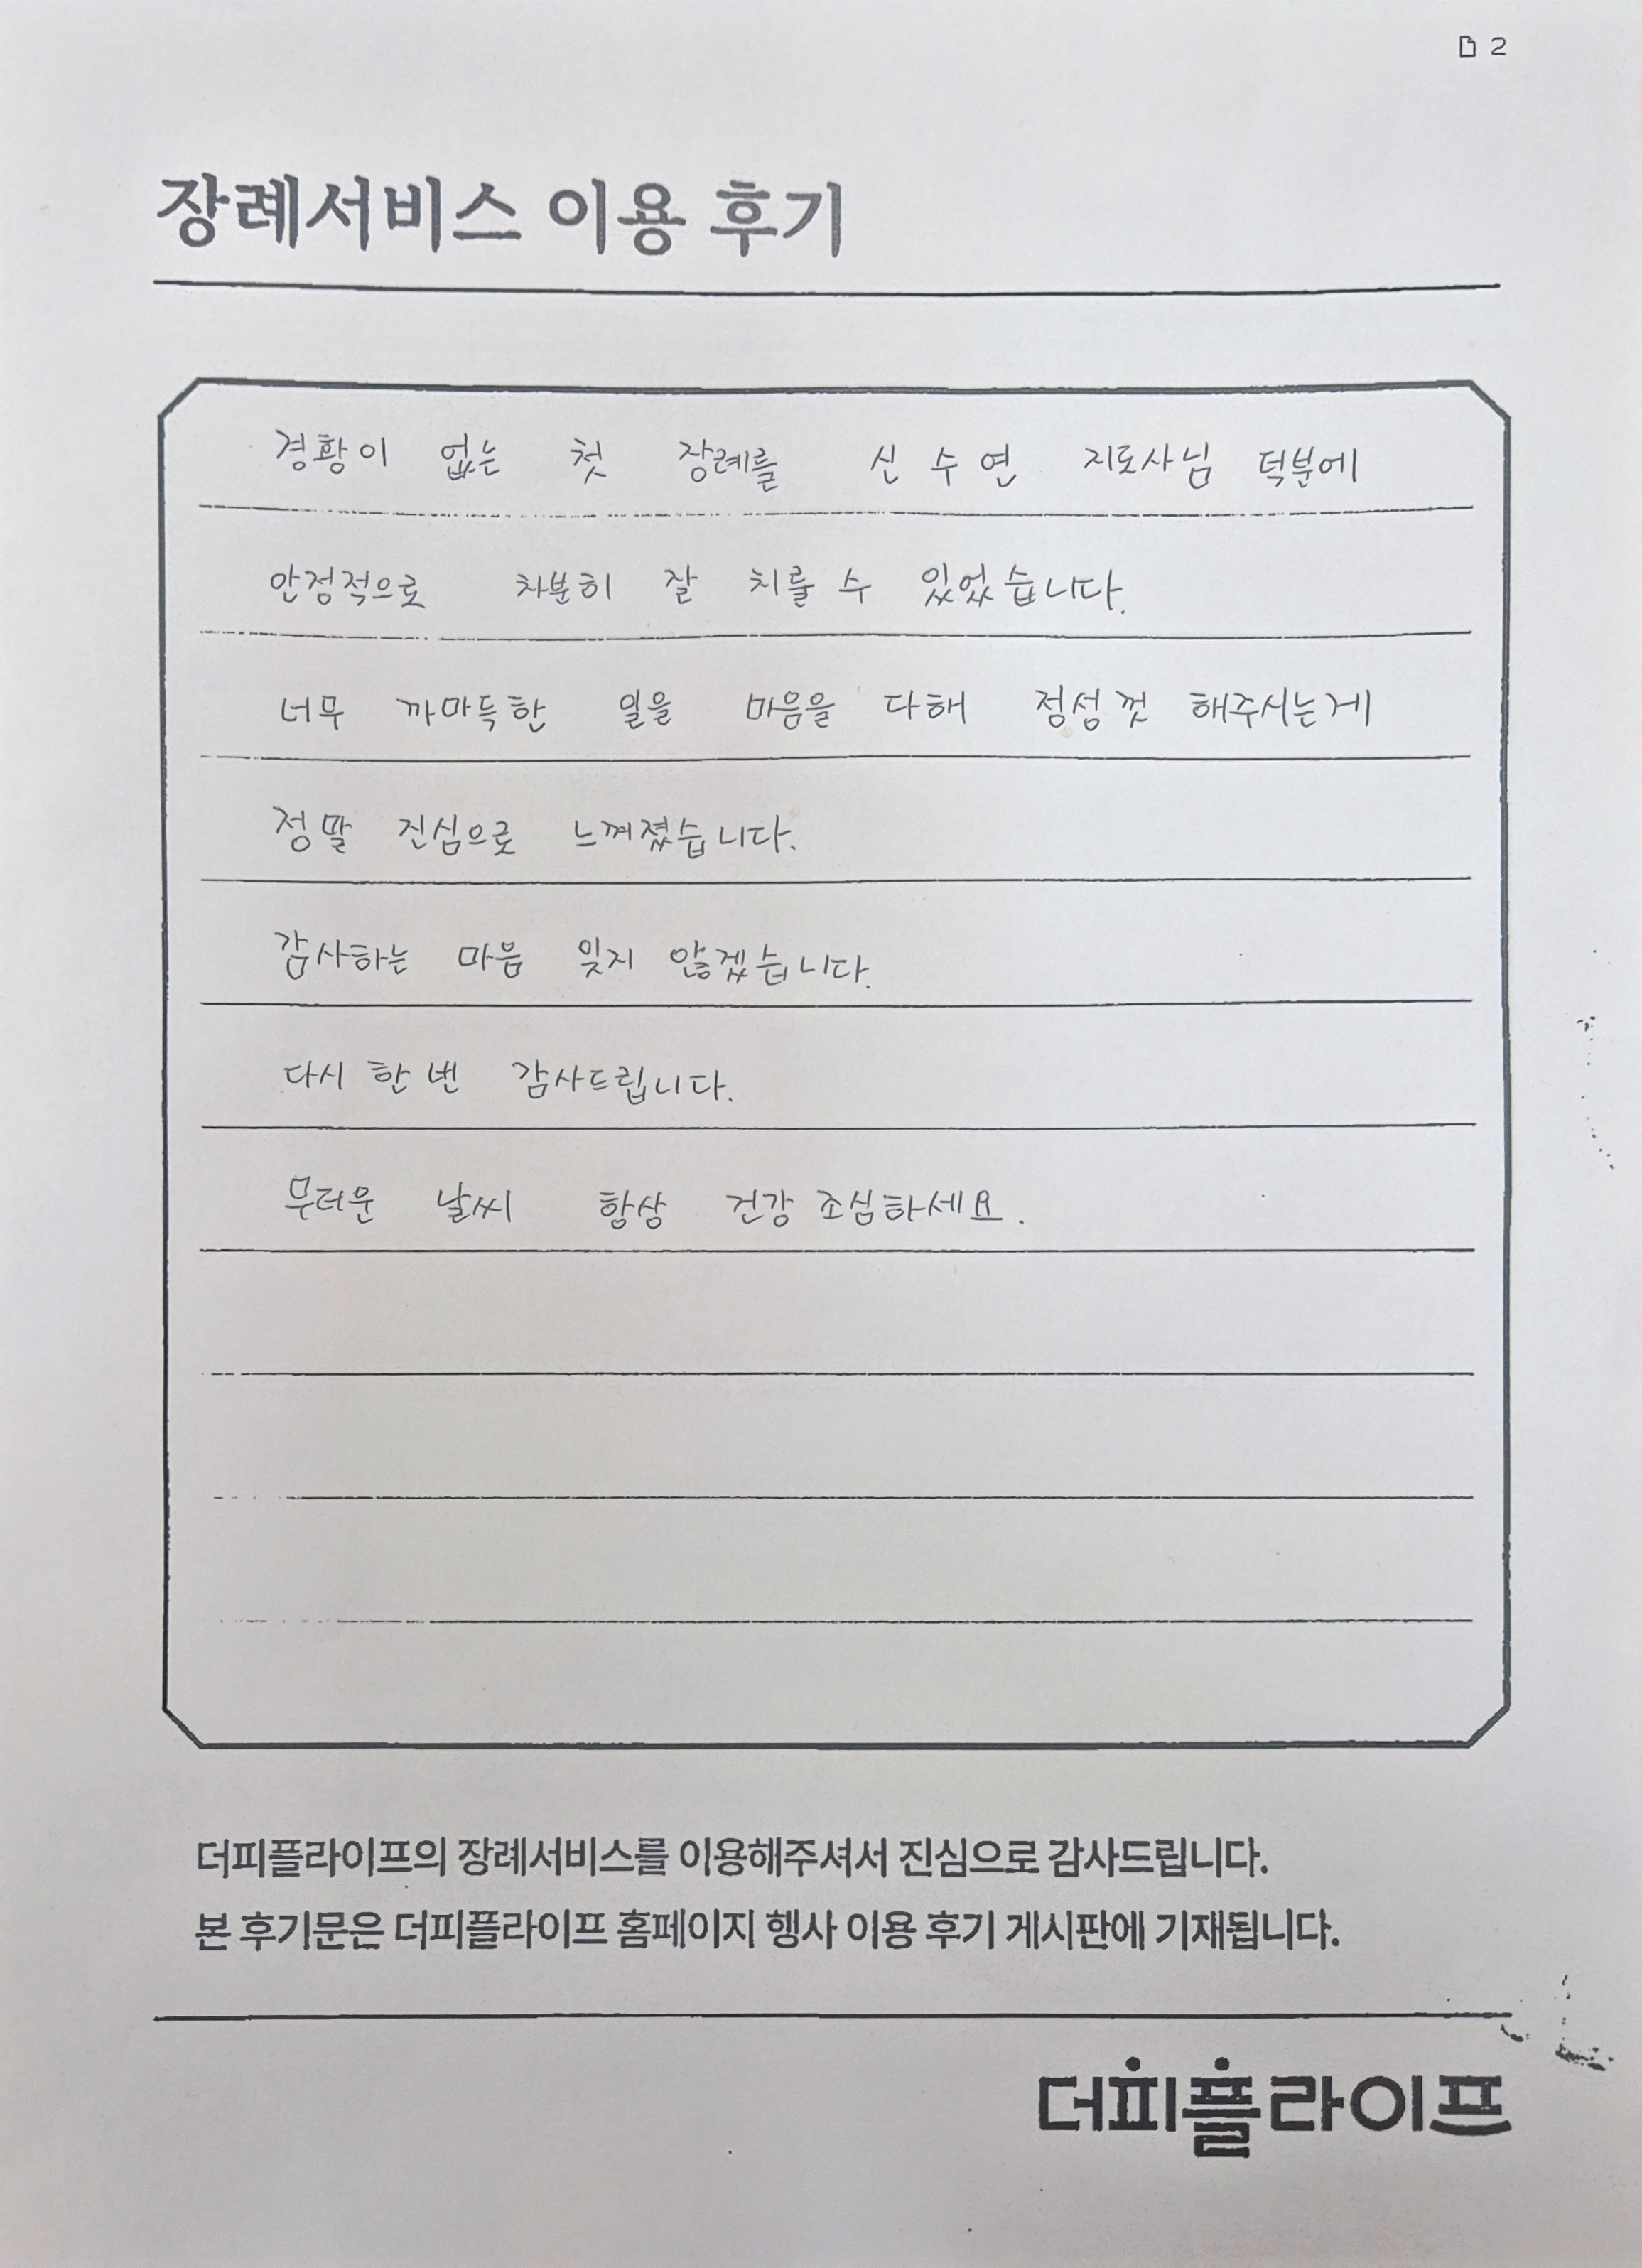 2
장례서비스 이용 후기
경황이 없는 첫 장례를 신수연 지도사님 덕분에
안정적으로 차분히 잘 치룰 수 있었습니다.
너무 까마득한 일을 마음을 다해 정성껏 해주시는게
정말 진심으로 느껴졌습니다.
감사하는 마음 잊지 않겠습니다.
다시 한 번 감사드립니다.
무더운 날씨 항상 건강 조심하세요.
더피플라이프의 장례서비스를 이용해주셔서 진심으로 감사드립니다.
본 후기문은 더피플라이프 홈페이지 행사 이용 후기 게시판에 기재됩니다.
더피플라이프